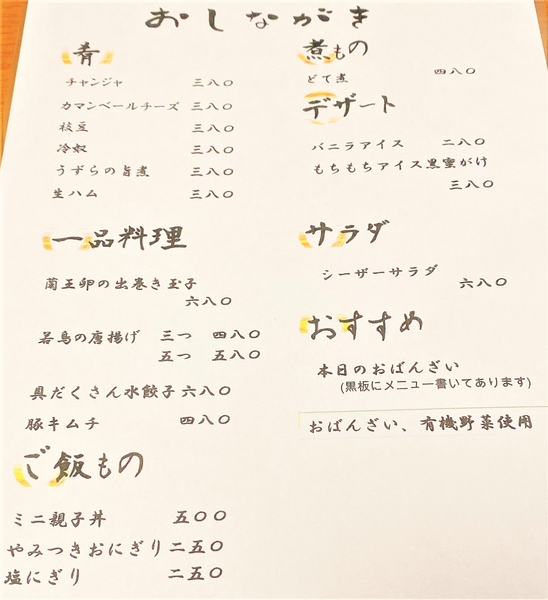 おしながき
肴
チャンジャ 三八〇
カマンベールチーズ 三八〇
枝豆 三八〇
冷奴 三八〇
うずらの旨煮 三八〇
生ハム 三八〇
一品料理
蘭王卵の出巻き玉子
六八〇
若鳥の唐揚げ 三つ 四八〇
五つ 五八〇
具だくさん水餃子 六八〇
豚キムチ 四八〇
ご飯もの
ミニ親子丼 五〇〇
やみつきおにぎり 二五〇
塩にぎり 二五〇
煮もの
どて煮 四八〇
デザート
バニラアイス 二八〇
もちもちアイス黒蜜がけ
三八〇
サラダ
シーザーサラダ 六八〇
おすすめ
本日のおばんざい
(黒板にメニュー書いてあります)
おばんざい、有機野菜使用